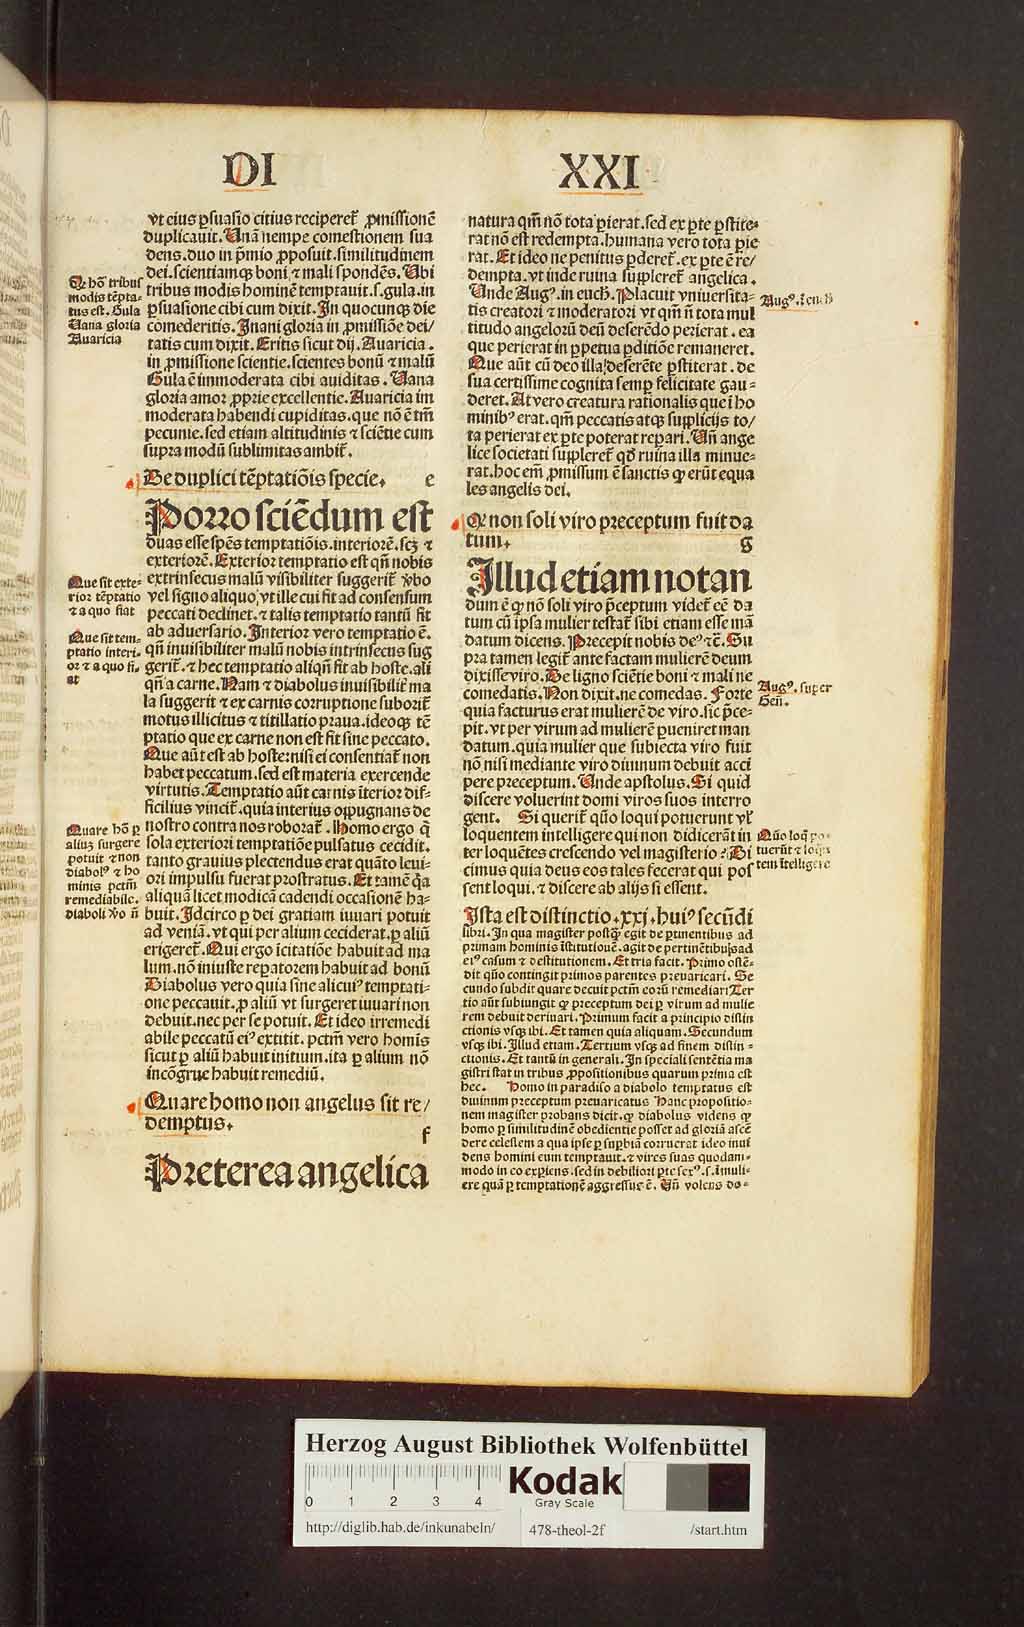 DI
XXI
vt eius ꝑsuasio citius reciperet̃ ꝓmissionẽ
duplicauit. Unã nempe comestionem sua
dens. duo in p̃mio ꝓposuit. similitudinem
dei. scientiamqꝫ boni ⁊ mali spondẽs. Ubi
tribus modis hominẽ temptauit. s. gula. in
ꝑsuasione cibi cum dixit. In quocunqꝫ die
comederitis. Inani gloria in ꝓmissiõe dei/
tatis cum dixit. Eritis sicut dij. Auaricia.
in ꝓmissione scientie. scientes bonũ ⁊ malũ
Gula ẽ immoderata cibi auiditas. Uana
gloria amor ꝓprie excellentie. Auaricia im
moderata habendi cupiditas. que nõ ẽ tm̃
pecunie. sed etiam altitudinis ⁊ sciẽtie cum
supra modũ sublimitas ambit̃.
De duplici tẽptatiõis specie. e
Porro sciẽdum est
duas esse spẽs temptatiõis. interiorẽ. scꝫ ⁊
exteriorẽ. Exterior temptatio est qñ nobis
extrinsecus malũ visibiliter suggerit̃ v̾bo
vel signo aliquo, vt ille cui fit ad consensum
peccati declinet. ⁊ talis temptatio tantũ fit
ab aduersario. Interior vero temptatio ẽ.
qñ inuisibiliter malũ nobis intrinsecus sug
gerit̃. ⁊ hec temptatio aliqñ fit ab hoste. ali
qñ a carne. Nam ⁊ diabolus inuisibilit̃ ma
la suggerit ⁊ ex carnis corruptione suborit̃
motus illicitus ⁊ titillatio praua. ideoqꝫ tẽ
ptatio que ex carne non est fit sine peccato.
Que aũt est ab hoste: nisi ei consentiat̃ non
habet peccatum. sed est materia exercende
virtutis. Temptatio aũt carnis ĩterior dif-
ficilius vincit̃. quia interius oppugnans de
nostro contra nos roborat̃. Homo ergo q̃
sola exteriori temptatiõe pulsatus cecidit.
tanto grauius plectendus erat quãto leui-
ori impulsu fuerat prostratus. Et tamẽ q̃a
aliquã licet modicã cadendi occasionẽ ha-
buit. Idcirco ꝑ dei gratiam iuuari potuit
ad veniã. vt qui per alium ceciderat. ꝑ aliũ
erigeret̃. Qui ergo ĩcitatiõe habuit ad ma
lum. nõ iniuste reꝑatorem habuit ad bonũ
Diabolus vero quia sine alicui⁹ temptati-
one peccauit. ꝑ aliũ vt surgeret iuuari non
debuit. nec per se potuit. Et ideo irremedi
abile peccatũ ei⁹ extitit. pctm̃ vero homis
sicut ꝑ aliũ habuit initium. ita ꝑ alium nõ
incõgrue habuit remediũ.
Quare homo non angelus sit re/
demptus. f
Preterea angelica
De hoĩ tribus
modis tẽpta-
tus est. Gula
Uana gloria
Auaricia
Que sit exte-
rior tẽptatio
⁊ a quo fiat
Que sit tem-
ptatio interi-
or ⁊ a quo fi-
at
Quare hõ ꝑ
aliuꝫ surgere
potuit ⁊ non
diabol⁹ ⁊ ho
minis pctm̃
remediabile.
diaboli v̾o ñ
natura qm̃ nõ tota ꝑierat. sed ex ꝑte ꝑstite-
rat nõ est redempta. humana vero tota ꝑie
rat. Et ideo ne penitus ꝑderet̃. ex ꝑte ẽ re/
dempta. vt inde ruina suppleret̃ angelica.
Unde Aug⁹. in euch̃. Placuit vniuersita-
tis creatori ⁊ moderatori vt qm̃ ñ tota mul
titudo angelorũ deũ deserẽdo perierat. ea
que perierat in ꝑpetua ꝑditiõe remaneret.
Que aũt cũ deo illa deserẽte ꝑstiterat. de
sua certissime cognita semꝑ felicitate gau-
deret. At vero creatura rationalis que ĩ ho
minib⁹ erat. qm̃ peccatis atqꝫ supplicijs to/
ta perierat ex ꝑte poterat reꝑari. Uñ ange
lice societati suppleret̃ qd̃ ruina illa minue-
rat. hoc em̃ ꝓmissum ẽ sanctis ꝙ erũt equa
les angelis dei.
Ꝙ non soli viro preceptum fuit da
tum. g
Illud etiam notan
dum ẽ ꝙ nõ soli viro p̃ceptum videt̃ eẽ da
tum cũ ipsa mulier testat̃ sibi etiam esse mã
datum dicens. Precepit nobis de⁹ ⁊c̃. Su
pra tamen legit̃ ante factam mulierẽ deum
dixisse viro. De ligno sciẽtie boni ⁊ mali ne
comedatis. Non dixit. ne comedas. Forte
quia facturus erat mulierẽ de viro. sic p̃ce-
pit. vt per virum ad mulierẽ ꝑueniret man
datum. quia mulier que subiecta viro fuit
nõ nisi mediante viro diuinum debuit acci
pere preceptum. Unde apostolus. Si quid
discere voluerint domi viros suos interro
gent. Si querit̃ quõ loqui potuerunt vl̃
loquentem intelligere qui non didicerãt in
ter loquẽtes crescendo vel magisterio: Di
cimus quia deus eos tales fecerat qui pos
sent loqui. ⁊ discere ab alijs si essent.
Ista est distinctio .xxj. hui⁹ secũdi
libri. In qua magister postꝙ̃ egit de ꝑtinentibus ad
primam hominis ĩstitutionẽ. agit de pertinẽtibus ad
ei⁹ casum ⁊ destitutionem. Et tria facit. Primo ostẽ-
dit quõ contingit primos parentes preuaricari. Se
cundo subdit quare decuit pctm̃ eorũ remediari Ter
tio aũt subiungit ꝙ preceptum dei ꝑ virum ad mulie
rem debuit deriuari. Primum facit a principio distin
ctionis vsqꝫ ibi. Et tamen quia aliquam. Secundum
vsqꝫ ibi. Illud etiam. Tertium vsqꝫ ad finem distin-
ctionis. Et tantũ in generali. In speciali sentẽtia ma
gistri stat in tribus ꝓpositionibus quarum prima est
hec. Homo in paradiso a diabolo temptatus est
diuinum preceptum preuaricatus Hanc propositio-
nem magister probans dicit. ꝙ diabolus videns ꝙ
homo ꝑ similitudinẽ obedientie posset ad gloriã ascẽ
dere celestem a qua ipse ꝑ suꝑbiã corruerat ideo inui
dens homini eum temptauit. ⁊ vires suas quodam-
modo in eo exꝑiens. sed in debiliori ꝑte sex⁹. s. ĩ muli-
ere quã ꝑ temptationẽ aggressus ẽ. Uñ volens do-
Aug⁹. ĩ euch̃
Aug⁹. super
Gen̄.
Quõ loq̃ po-
tuerũt ⁊ loquẽ
tem ĩtelligere
Herzog August Bibliothek Wolfenbüttel
0 1 2 3 4
Kodak
Gray Scale
http://diglib.hab.de/inkunabeln/ 478-theol-2f /start.htm